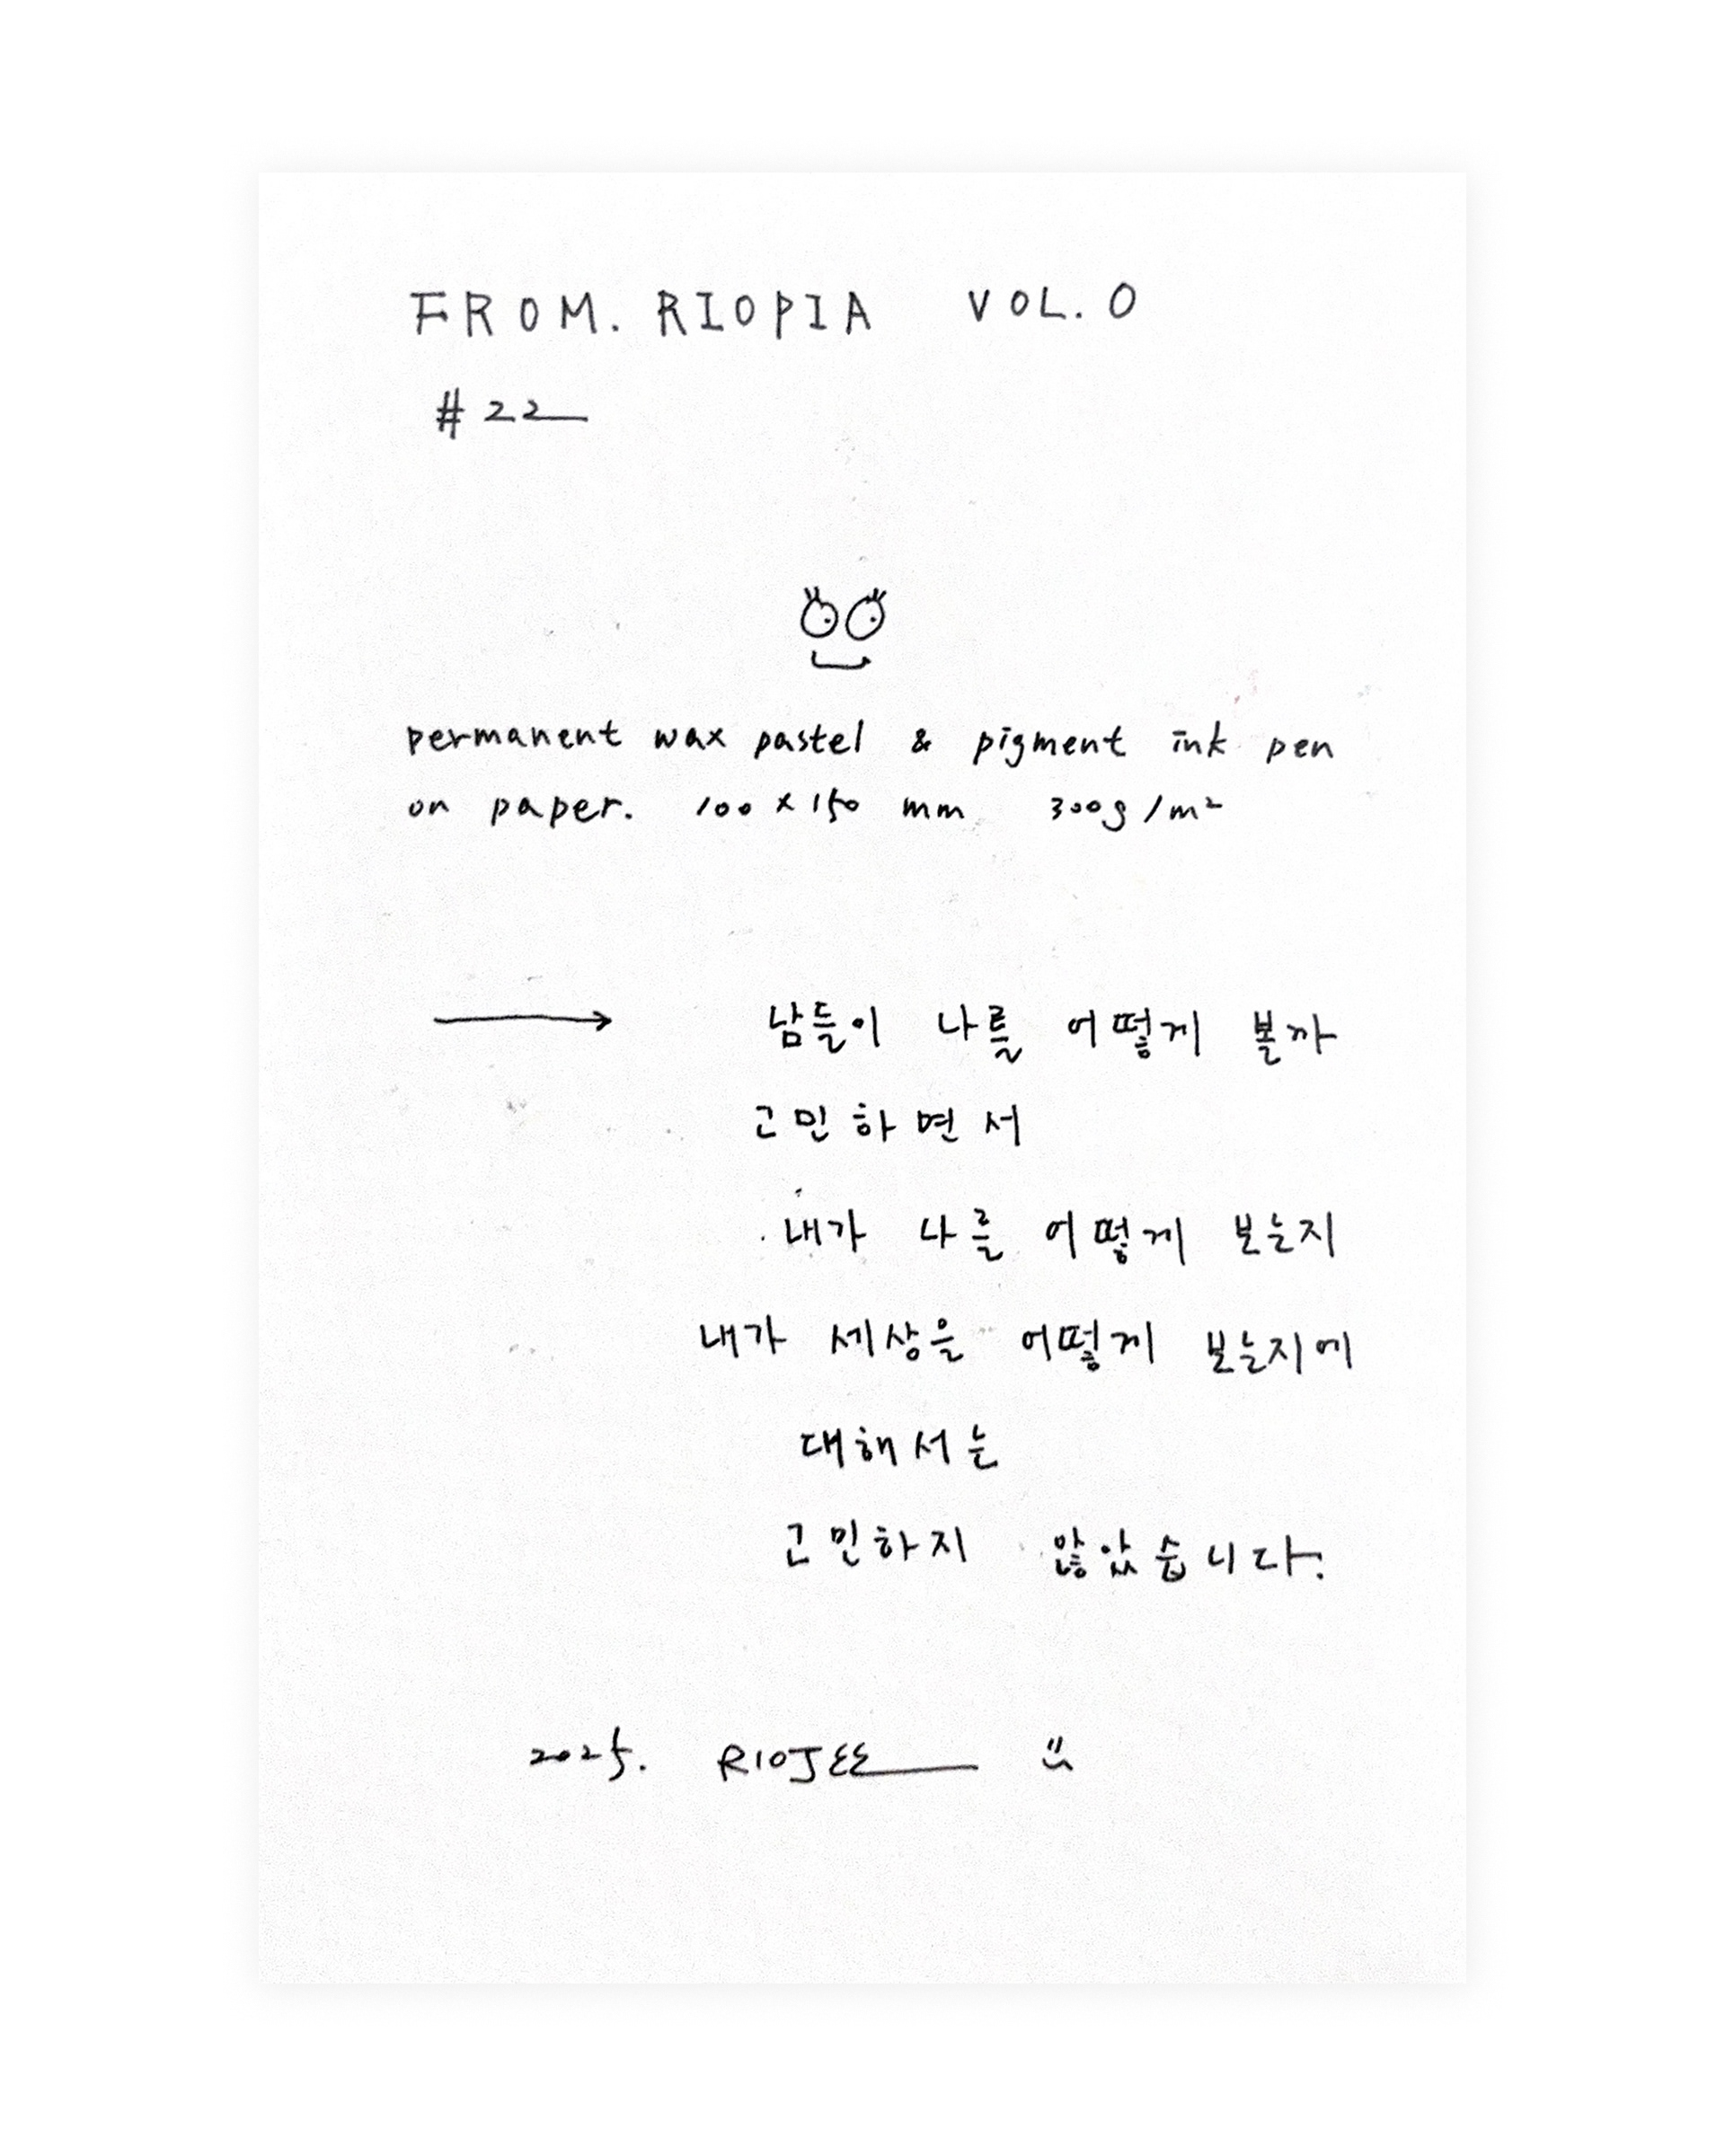 FROM. RIOPIA VOL. 0
#22
permanent wax pastel & pigment ink pen
on paper. 100 x 150 mm 300g/m²
남들이 나를 어떻게 볼까
고민하면서
내가 나를 어떻게 보는지
내가 세상을 어떻게 보는지에
대해서는
고민하지 않았습니다.
2025. RIOJEE